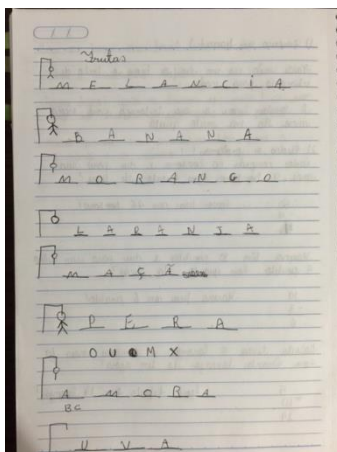 Frutas
M E L A N C I A
B A N A N A
M O R A N G O
L A R A N J A
M A Ç Ã
P E R A
O U M X
A M O R A
BC
U V A